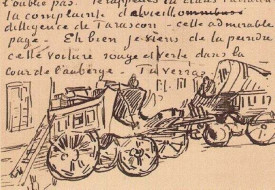 t'oublie pas.
la complainte
diligence de Tarascon – cette admirable
page – Eh bien je viens de la peindre
cette voiture rouge et verte dans la
cour de l'auberge – Tu verras